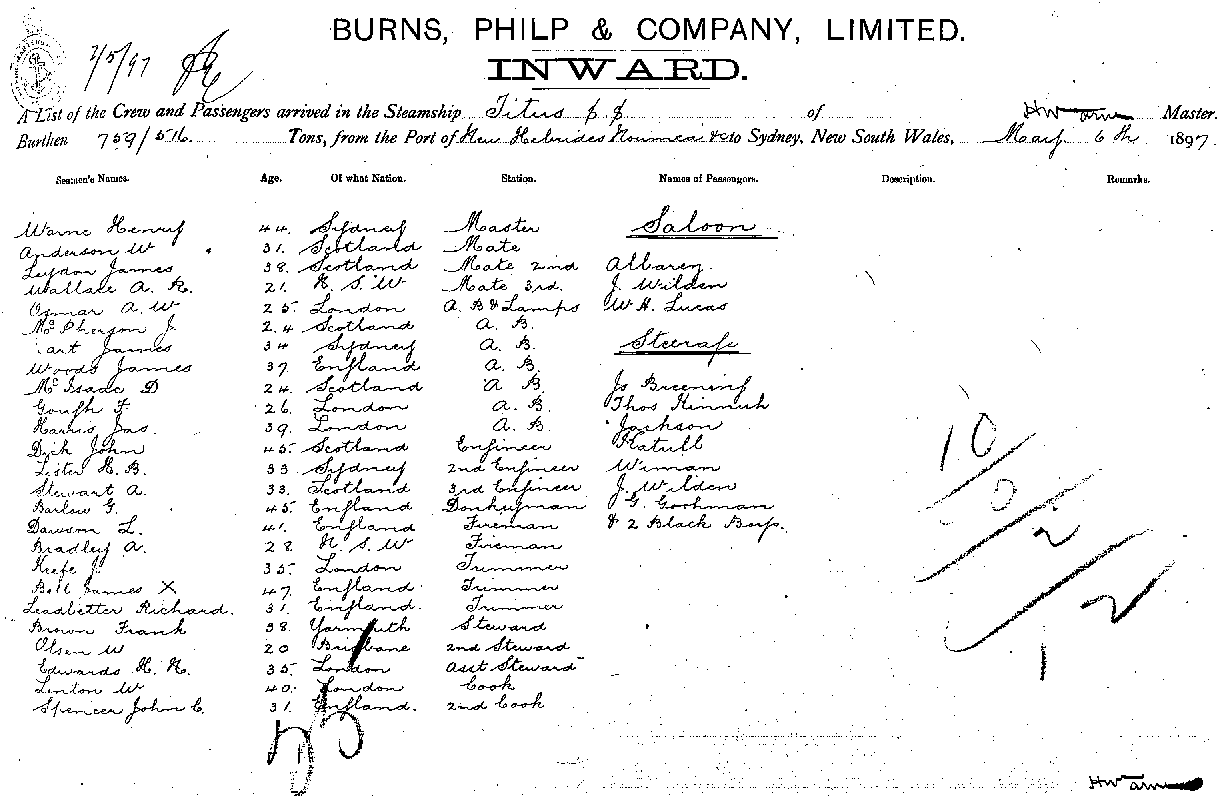 BURNS, PHILP & COMPANY, LIMITED.
INWARD.
7/5/97
A List of the Crew and Passengers arrived in the Steamship Titus of HWarne Master.
Burthen 759/516 Tons, from the Port of New Hebrides Noumea &c to Sydney, New South Wales, May 6th 1897
Seamen's Names. Age. Of what Nation. Station. Names of Passengers. Description. Remarks.
Warne Henry 44. Sydney Master Saloon
Anderson W 31. Scotland Mate
Leydon James 38. Scotland Mate 2nd Albarey
Wallace A. R. 21. N. S. W Mate 3rd. J. Wilden
Osmar A. W 25. London A. B & Lamps W. H. Lucas
McPherson J. 24 Scotland A. B.
art James 34 Sydney A. B. Steerage
Woods James 37. England A. B.
McIsaac D 24. Scotland A B Js Breening
Gough F. 26. London A. B. Thos
Harris Jas. 39. London A. B. Jackson
Dick John 45. Scotland Engineer
Lister H. B. 33 Sydney 2nd Engineer Wiman
Stewart A. 33. Scotland 3rd Engineer J. Wilden
Barlow G. 45. England Donkeyman G. Goohman
Dawson L. 41. England Fireman & 2 Black Boys.
Bradley A. 28. N. S. W Fireman
Keefe J. 35. London Trimmer
Bell James X 47. England Trimmer
Leadbetter Richard. 31. England. Trimmer
Brown Frank 38. Yarmouth Steward
Olsen W 20 Brisbane 2nd Steward
Edwards H. H. 35. London asst Steward
Linton W 40. London Cook
Spencer John C. 31. England. 2nd Cook
25
10
0
2
1/2
1
HWarne